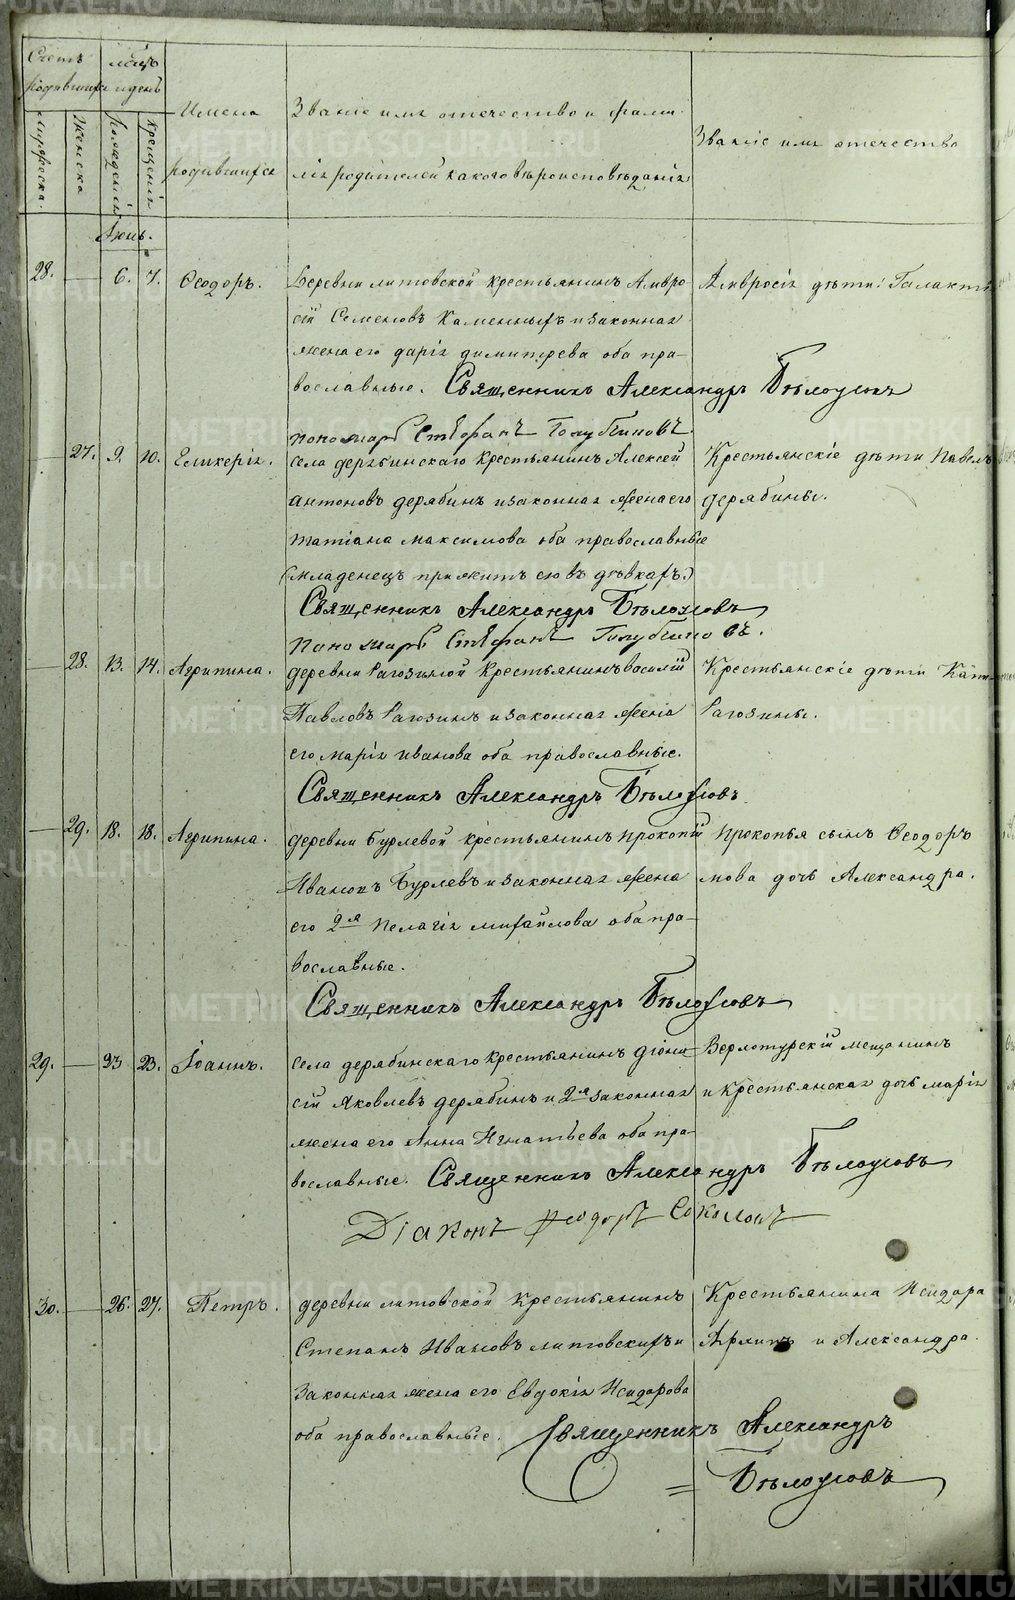 Счетъ родившихся
мужеска.
женска
мѣсяцъ и день
рожденія
крещенія
Имена родившихся
Званіе имя отечество и фами-
лія родителей какого вѣроисповѣданія
Званіе имя отечество
Іюнь.
28. 6. 7. Ѳеодоръ.
Деревни литовской крестьянинъ Амвро-
сій Семеновъ Каменныхъ и законная
жена его дарія димитрева оба пра-
вославные. Священникъ Александръ Бѣлоусовъ
пономарь Стефанъ Голубчиковъ
Амвросія дѣти: Галакті
27. 9. 10. Гликерія.
села дерябинскаго крестьянинъ Алексей
антоновъ дерябинъ и законная жена его
татіана максимова оба православные
(младенецъ прижитъ ею въ дѣвкахъ.)
Священникъ Александръ Бѣлоусовъ
пономарь Стефанъ Голубчиковъ.
Крестьянскіе дѣти Павелъ
дерябины.
28. 13. 14. Агрипина.
деревни Рагозиной Крестьянинъ василій
Павловъ Рагозинъ и законная жена
его марія иванова оба православные.
Священникъ Александръ Бѣлоусовъ
Крестьянскіе дѣти
Рагозины.
29. 18. 18. Агрипина.
деревни Бурлевой крестьянинъ прокопій
Ивановъ Бурлевъ и законная жена
его 2я пелагія михайлова оба пра-
вославные.
Священникъ Александръ Бѣлоусовъ
прокопья сынъ Ѳеодоръ
мова дочь Александра.
29. 23 23. Іоаннъ.
села дерябинскаго крестьянинъ діони-
сій Яковлевъ дерябинъ и 2я законная
жена его Анна Игнатьева оба пра-
вославные. Священникъ Александръ Бѣлоусовъ
Діаконъ Ѳеодоръ Соколовъ
Верхотурскій мещанинъ
и крестьянская дочь марія
30. 26. 27. Петръ.
деревни литовской крестьянинъ
Степанъ Ивановъ литовскихъ и
законная жена его Евдокія Исидорова
оба православные. Священникъ Александръ
Бѣлоусовъ
Крестьянина Исидора
и Александра.
METRIKI.GASO-URAL.RU